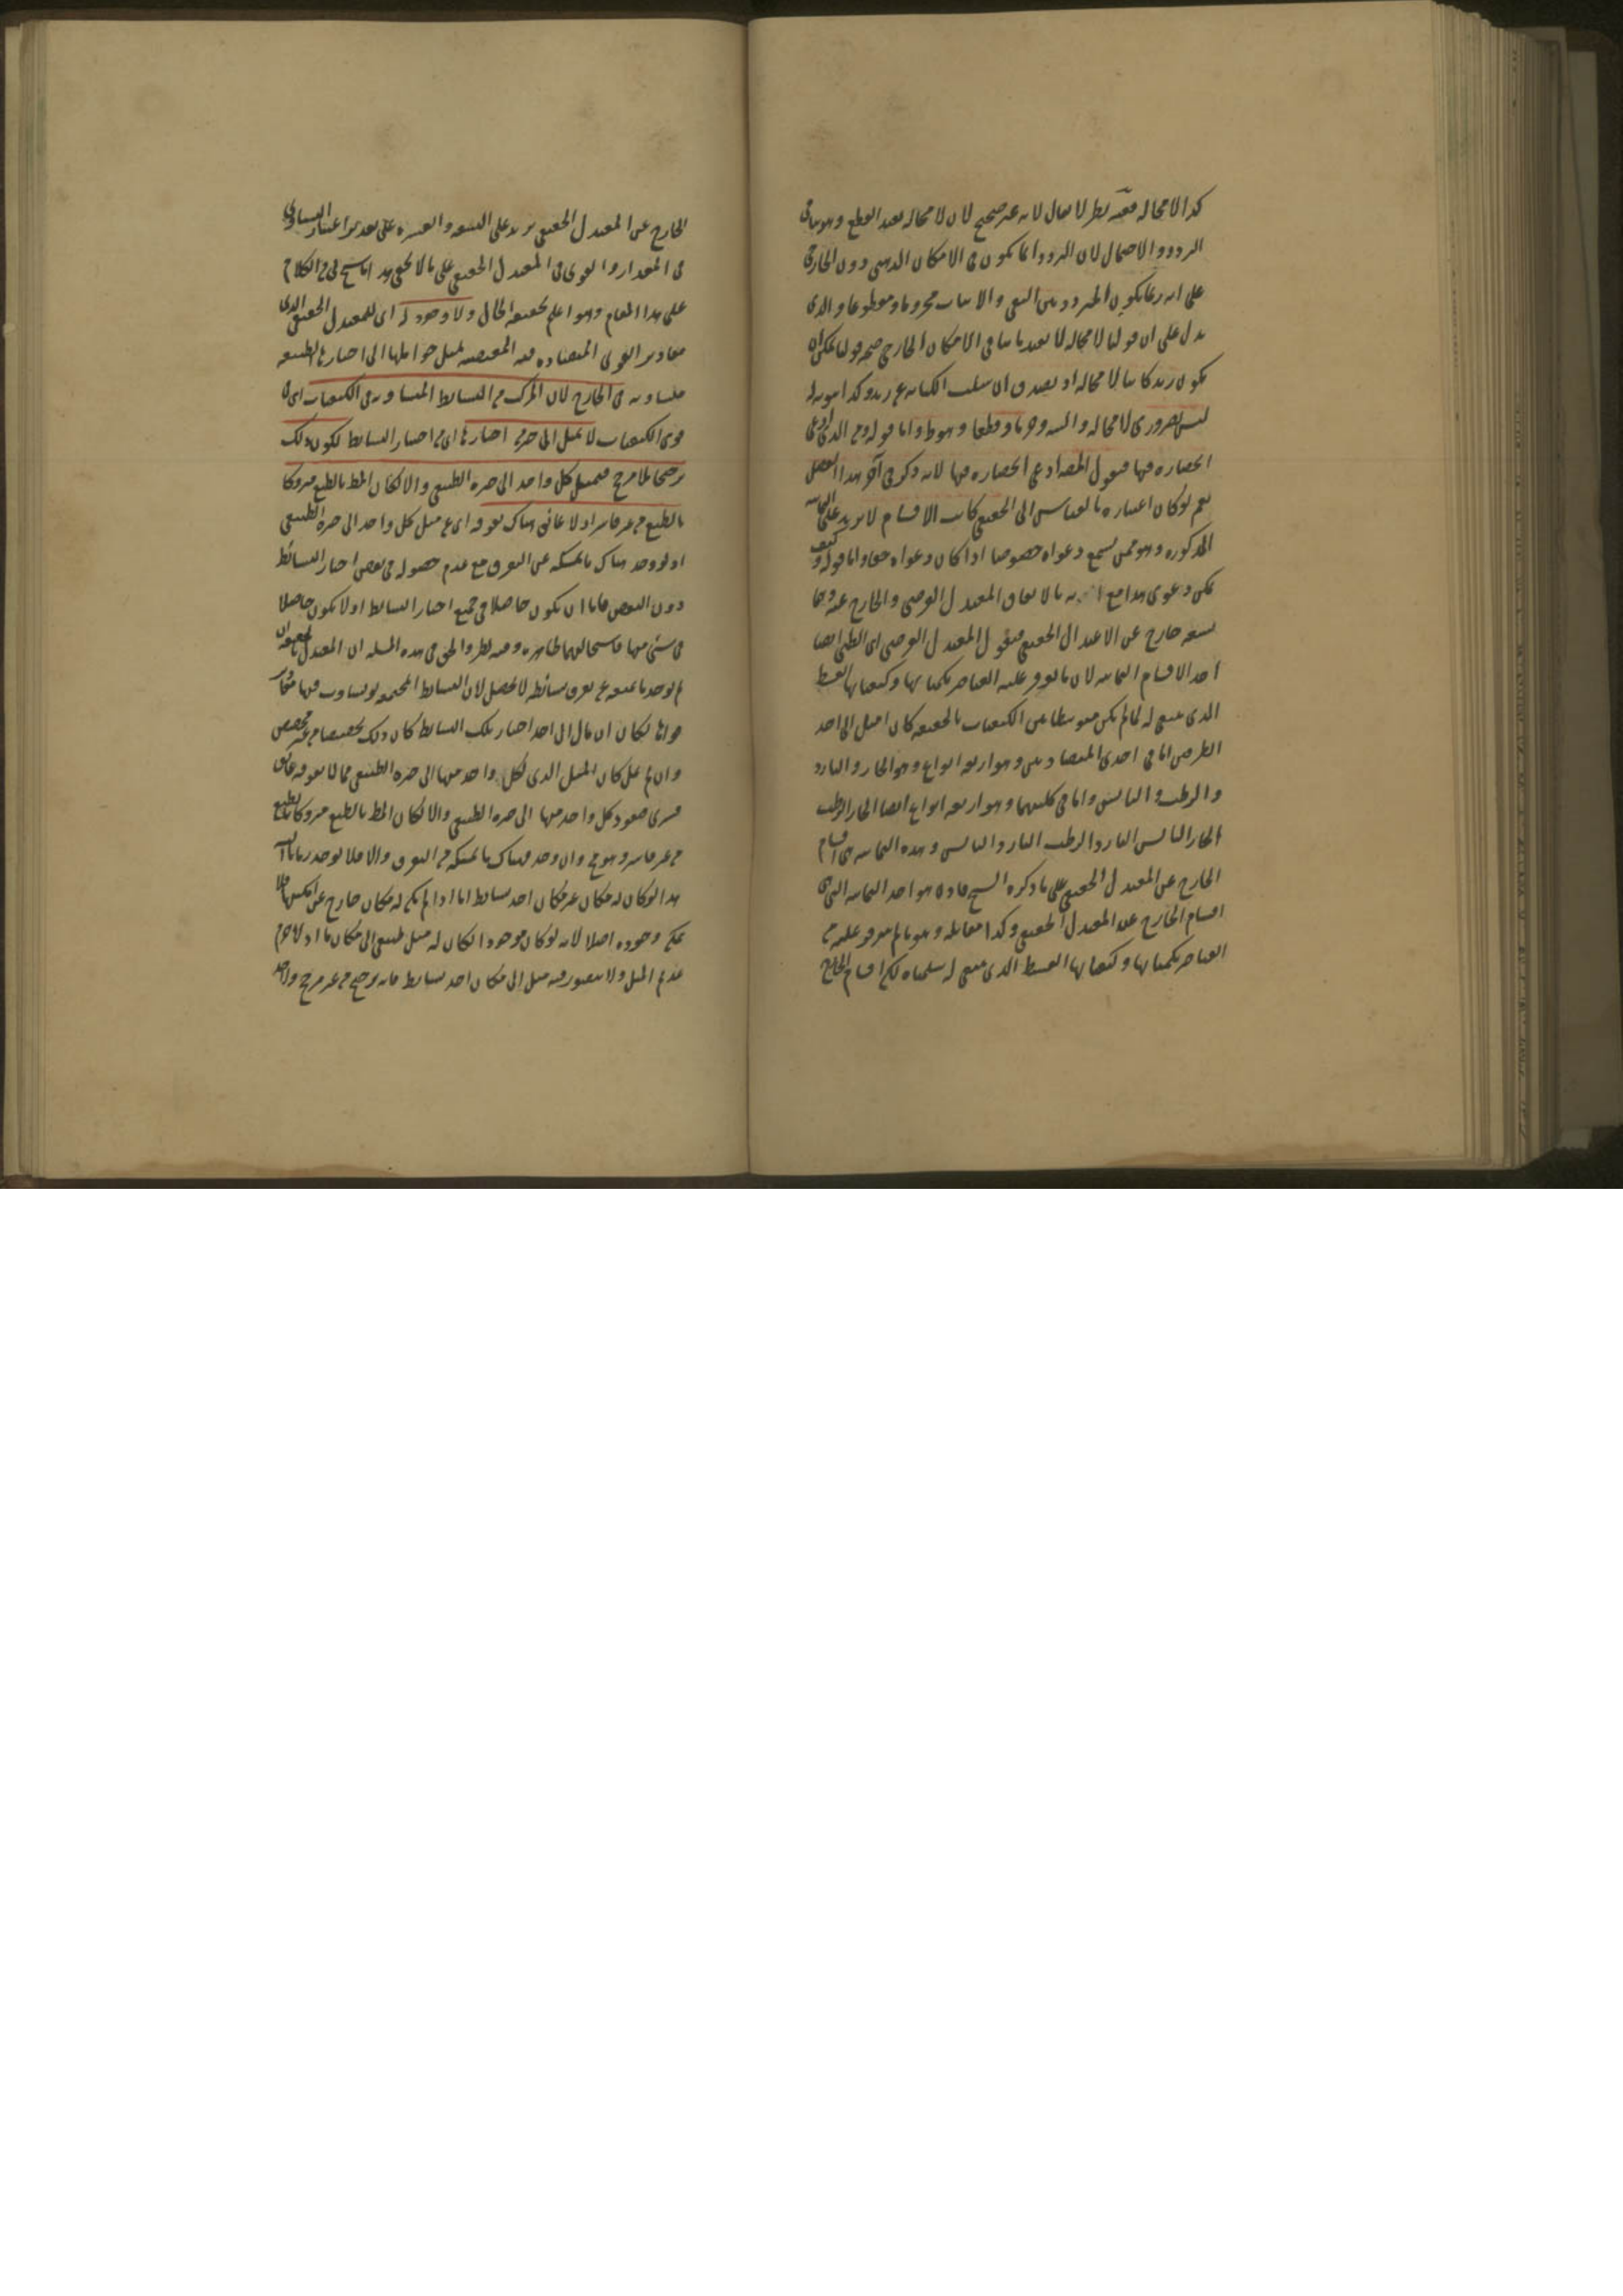 كذا لا محالة ففيه نظر لا يقال لانه غير صحيح لان لا محالة يفيد القطع وهو ينافى
التردد والاحتمال لان التردد انما يكون فى الامكان الذهنى دون الخارجى
على انه ربما يكون المتردد بين النفى والاثبات مجزوما ومقطوعا والذى
يدل على ان قولنا لا محالة لا يفيد ما ينافى الامكان الخارجى صحة قولنا يمكن ان
يكون زيد كاتبا لا محالة او يصدق ان سلب الكتابة عن زيد وكذا ثبوته له
ليس بضرورى لا محالة والبتة وجزما وقطعا وهو ظ واما قوله ومن الذى ادعى
انحصاره فيها فنقول المص ادعى انحصاره فيها لانه ذكر فى آخر هذا الفصل
نعم لو كان اعتباره بالقياس الى الحقيقى كانت الاقسام لا تزيد على الثمانية
المذكورة وهو ممن يسمع دعواه خصوصا اذا كان دعواه حقا واما قوله وكيف
يمكن دعوى هذا مع بالاتفاق المعتدل الفرضى والخارج عنه وهما
تسعة خارج عن الاعتدال الحقيقى فنقول المعتدل الفرضى اى الطبى ايضا
احد الاقسام الثمانية لان ما توفر عليه العناصر بكمياتها وكيفياتها القسط
الذى ينبغى له لما لم يكن متوسطا بين الكيفيات بالحقيقة كان اميل الى احد
الطرفين اما فى احدى المتضادتين وهو اربعة انواع وهو الحار والبارد
والرطب واليابس واما فى كليهما وهو اربعة انواع ايضا الحار الرطب
الحار اليابس البارد الرطب البارد اليابس وهذه الثمانية هى اقسام
الخارج عن المعتدل الحقيقى على ما ذكره الشيخ فاذن هو احد الثمانية التى هى
اقسام الخارج عن المعتدل الحقيقى وكذا مقابله وهو ما لم يتوفر عليه من
العناصر بكمياتها وكيفياتها القسط الذى ينبغى له سلمناه لكن اقسام الخارج
الخارج عن المعتدل الحقيقى تزيد على التسعة والعشرة على تقدير اعتبار التساوى
فى المقدار والقوى فى المعتدل الحقيقى على ما لا يخفى هذا ما سنح لى فى الكلام
على هذا المقام وهو اعلم بحقيقة الحال ولا وجود له اى للمعتدل الحقيقى الذى
مقادير القوى المتضادة فيه المقتضية لميل حواملها الى احيازها الطبيعية
متساوية فى الخارج لان المركب من البسائط المتساوية فى الكيفيات اى فى
قوى الكيفيات لا يميل الى حيز من احيازها اى من احياز البسائط لكون ذلك
ترجيحا بلا مرجح فيميل كل واحد الى حيزه الطبيعى والا لكان المط بالطبع متروكا
بالطبع من غير قاسر اذ لا عائق هناك يعوقه اى عن ميل كل واحد الى حيزه الطبيعى
اذ لو وجد هناك ما يمسكه عن التفرق مع عدم حصوله فى بعض احياز البسائط
دون البعض فاما ان يكون حاصلا فى جميع احياز البسائط او لا يكون حاصلا
فى شئ منها واستحالتهما ظاهرة وفيه نظر والحق فى هذه المسئلة ان المعتدل
لم يوجد ما يمنعه عن تفرق بسائطه لا يحصل لان البسائط المجتمعة لو تساوت فيها
قواها لكان ان مال الى احد احياز تلك البسائط كان ذلك تخصيصا من غير مخصص
وان لم يمل كان الميل الذى لكل واحد منها الى حيزه الطبيعى مما لا يعوقه عائق
فسرى صعود كل واحد منها الى حيزه الطبيعى والا لكان المط بالطبع متروكا بالطبع
من غير قاسر وهو مح وان وجد هناك ما يمسكه من التفرق والا فلا يوجد زمانا
هذا لو كان له مكان غير مكان احد بسائطه اما اذا لم يكن له مكان خارج عن امكنتها فلا
يمكن وجوده اصلا لانه لو كان موجودا لكان له ميل طبيعى الى مكان ما اذ لا جرم
عديم الميل ولا يتصور فيه ميل الى مكان احد بسائطه فانه ترجيح من غير مرجح